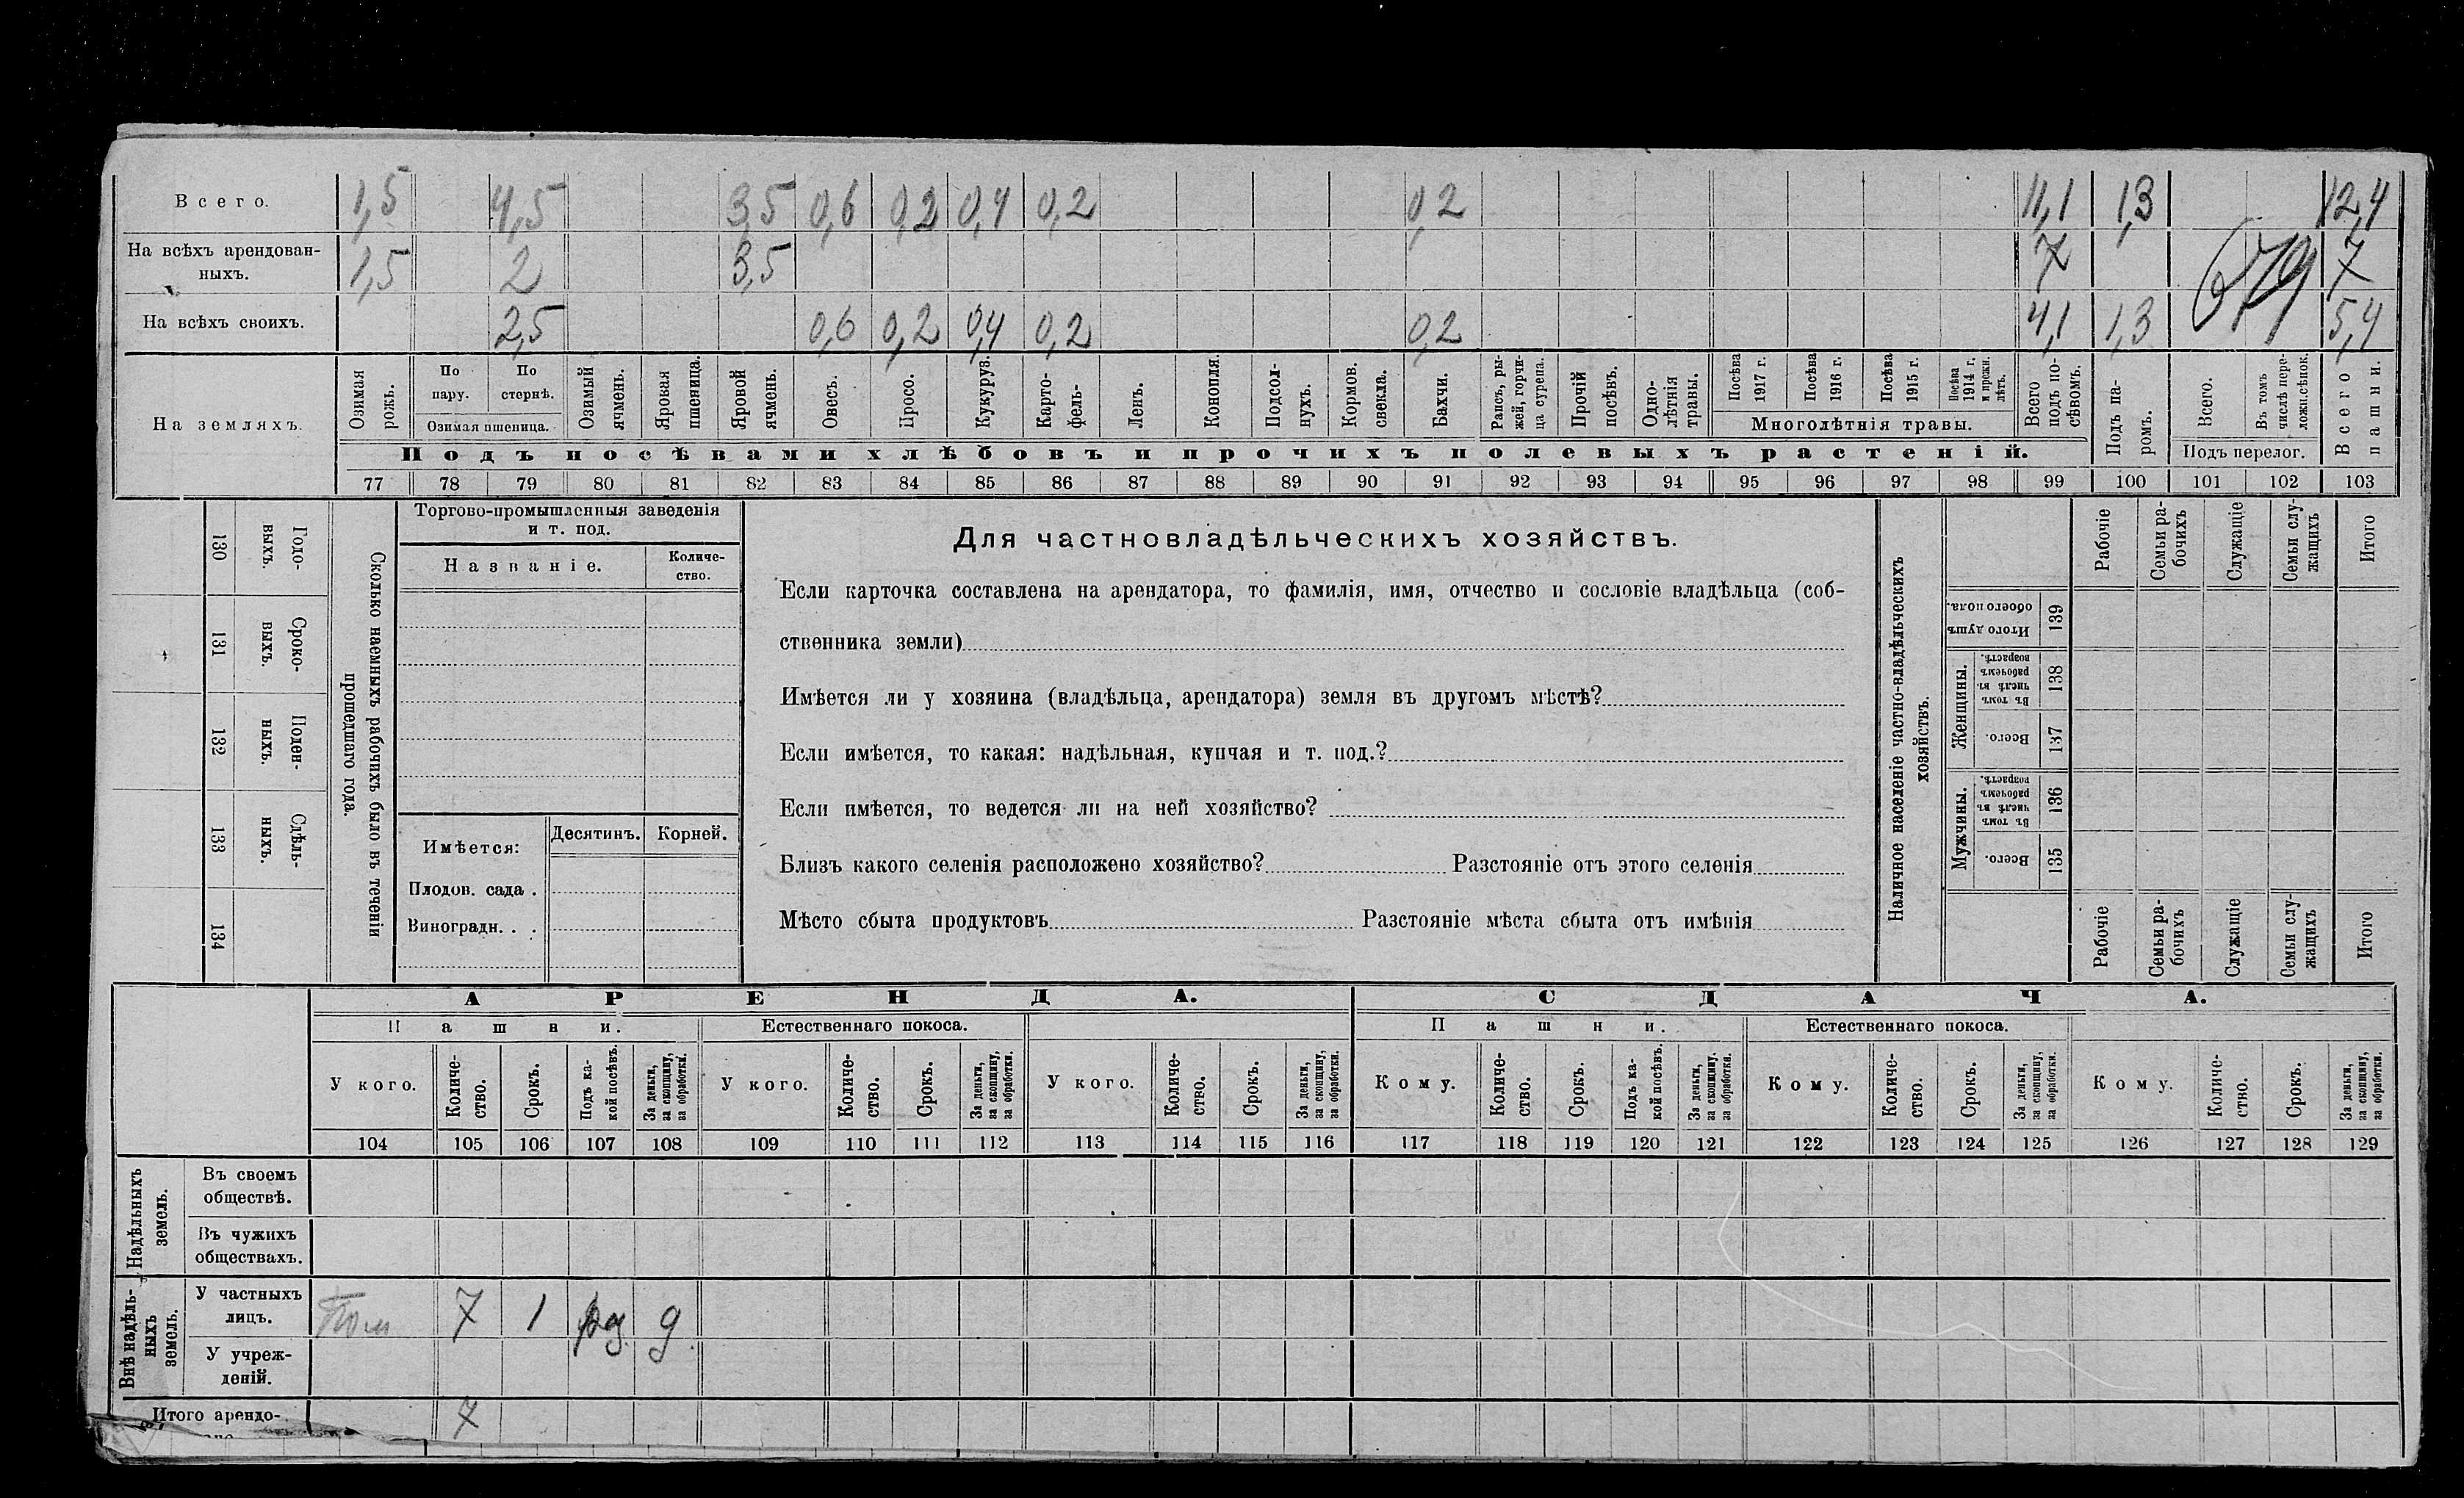 Всего. 1,5 4,5 3,5 0,6 0,2 0,4 0,2 0,2 11,1 1,3 12,4
На всѣхъ арендован-
ныхъ. 1,5 2 3,5 7 7
На всѣхъ своихъ. 2,5 0,6 0,2 0,4 0,2 0,2 4,1 1,3 5,4
679
На земляхъ.
Озимая рожь.
По пару.
По стернѣ.
Озимая пшеница.
Озимый ячмень.
Яровая пшеница.
Яровой ячмень.
Овесъ.
Просо.
Кукуруз.
Карто-
фель-
Ленъ.
Конопля.
Подсол-
нухъ.
Кормов.
свекла.
Бахчи.
Рапсъ, ры-
жей, горчи-
ца сурепа.
Прочій
посѣвъ.
Одно-
лѣтнія
травы.
Посѣва
1917 г.
Посѣва
1916 г.
Посѣва
1915 г.
Посѣва
1914 г.
и прежн.
лѣтъ.
Многолѣтнія травы.
Всего
подъ по-
сѣвомъ.
Подъ па-
ромъ.
Всего.
Въ томъ
числѣ пере-
ложн.сѣнок.
Подъ перелог.
Всего
пашни.
Подъ посѣвами хлѣбовъ и прочихъ полевыхъ растеній.
77 78 79 80 81 82 83 84 85 86 87 88 89 90 91 92 93 94 95 96 97 98 99 100 101 102 103
130 Годо-
выхъ.
131 Сроко-
выхъ.
132 Поден-
ныхъ.
133 Сдѣль-
ныхъ.
134
Сколько наемныхъ рабочихъ было въ теченіи
прошедшаго года.
Торгово-промышленныя заведенія
и т. под.
Названіе.
Количе-
ство.
Имѣется: Десятинъ. Корней.
Плодов. сада .
Виноградн. . .
Для частновладѣльческихъ хозяйствъ.
Если карточка составлена на арендатора, то фамилія, имя, отчество и сословіе владѣльца (соб-
ственника земли)
Имѣется ли у хозяина (владѣльца, арендатора) земля въ другомъ мѣстѣ?
Если имѣется, то какая: надѣльная, купчая и т. под.?
Если имѣется, то ведется ли на ней хозяйство?
Близъ какого селенія расположено хозяйство? Разстояніе отъ этого селенія
Мѣсто сбыта продуктовъ Разстояніе мѣста сбыта отъ имѣнія
Наличное населеніе частно-владѣльческихъ
хозяйствъ.
Рабочіе
Семьи ра-
бочихъ
Служащіе
Семьи слу-
жащихъ
Итого
Итого душъ
обоего пола.
139
Женщины.
Въ томъ
числѣ въ
рабочемъ
возрастѣ.
138
Всего.
137
Мужчины.
Въ томъ
числѣ въ
рабочемъ
возрастѣ.
136
Всего.
135
Рабочіе
Семьи ра-
бочихъ
Служащіе
Семьи слу-
жащихъ
Итого
АРЕНДА. СДАЧА.
Пашни. Естественнаго покоса. Пашни. Естественнаго покоса.
У кого.
Количе-
ство.
Срокъ.
Подъ ка-
кой посѣвъ.
За деньги,
за скопщину,
за обработки.
У кого.
Количе-
ство.
Срокъ.
За деньги,
за скопщину,
за обработки.
У кого.
Количе-
ство.
Срокъ.
За деньги,
за скопщину,
за обработки.
Кому.
Количе-
ство.
Срокъ.
Подъ ка-
кой посѣвъ.
За деньги,
за скопщину.
за обработки.
Кому.
Количе-
ство.
Срокъ.
За деньги,
за скопщину,
за обработки.
Кому.
Количе-
ство.
Срокъ.
За деньги,
за скопщину,
за обработки.
104 105 106 107 108 109 110 111 112 113 114 115 116 117 118 119 120 121 122 123 124 125 126 127 128 129
Надѣльныхъ
земель.
Въ своемъ
обществѣ.
Въ чужихъ
обществахъ.
Внѣ надѣль-
ныхъ
земель.
У частныхъ
лицъ. Пом 7 1 д
У учреж-
деній.
Итого арендо- 7